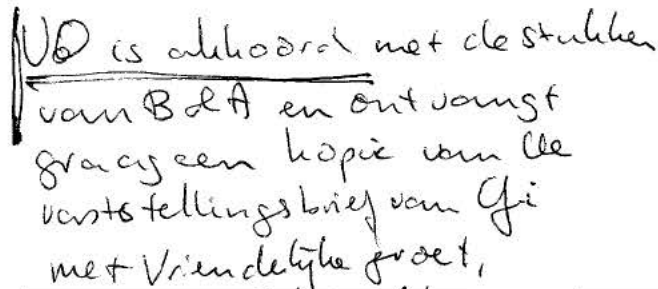 VO is akkoord met de stukken
van B&A en ontvangt
graag een kopie van de
vaststellingsbrief van Gi
met vriendelijke groet,